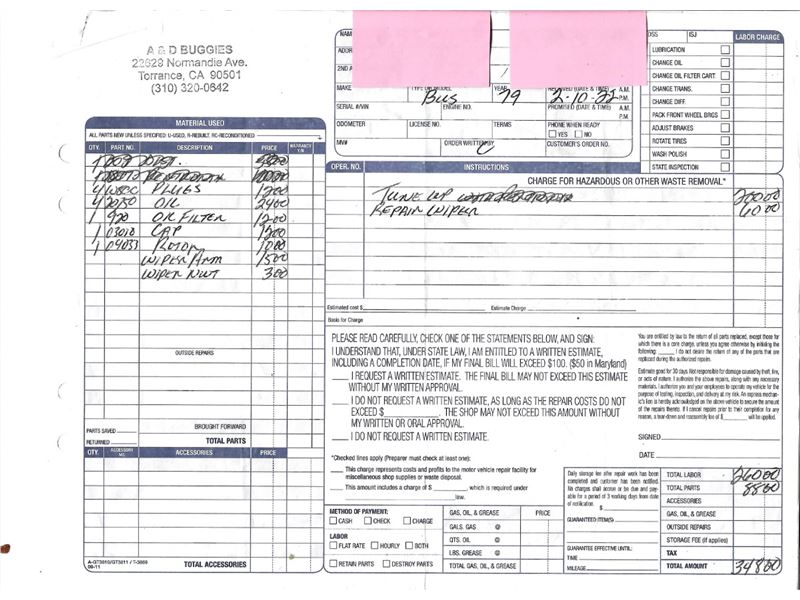 A & D BUGGIES
23628 Normandie Ave.
Torrance, CA 90501
(310) 320-0642
NAM
ADDR
2ND A
MAKE TYPE OR MODEL YEAR RECEIVED (DATE & TIME) A.M.
Bus 79 2-10-22 P.M.
SERIAL #/VIN ENGINE NO. PROMISED (DATE & TIME) A.M.
P.M.
ODOMETER LICENSE NO. TERMS PHONE WHEN READY
YES NO
MV# ORDER WRITTEN BY CUSTOMER'S ORDER NO.
DSS ISJ LABOR CHARGE
LUBRICATION
CHANGE OIL
CHANGE OIL FILTER CART.
CHANGE TRANS.
CHANGE DIFF.
PACK FRONT WHEEL BRGS
ADJUST BRAKES
ROTATE TIRES
WASH POLISH
STATE INSPECTION
MATERIAL USED
ALL PARTS NEW UNLESS SPECIFIED: U-USED, R-REBUILT, RC-RECONDITIONED
QTY. PART NO. DESCRIPTION PRICE WARRANTY Y/N
1 009 DIST.
4 W8DC PLUGS 1200
4 2050 OIL 2400
1 920 OIL FILTER 1200
1 03010 CAP 1200
1 04033 ROTOR 1000
WIPER ARM 1500
WIPER NUT 300
OUTSIDE REPAIRS
PARTS SAVED
BROUGHT FORWARD
RETURNED TOTAL PARTS
QTY. ACCESSORY NO. ACCESSORIES PRICE
A-GT3810/GT3811 / T-3868
09-11
TOTAL ACCESSORIES
OPER. NO. INSTRUCTIONS
CHARGE FOR HAZARDOUS OR OTHER WASTE REMOVAL*
TUNE UP 20000
REPAIR WIPER 6000
Estimated cost $ Estimate Charge
Basis for Charge
PLEASE READ CAREFULLY, CHECK ONE OF THE STATEMENTS BELOW, AND SIGN:
I UNDERSTAND THAT, UNDER STATE LAW, I AM ENTITLED TO A WRITTEN ESTIMATE,
INCLUDING A COMPLETION DATE, IF MY FINAL BILL WILL EXCEED $100. ($50 in Maryland)
I REQUEST A WRITTEN ESTIMATE. THE FINAL BILL MAY NOT EXCEED THIS ESTIMATE
WITHOUT MY WRITTEN APPROVAL.
I DO NOT REQUEST A WRITTEN ESTIMATE, AS LONG AS THE REPAIR COSTS DO NOT
EXCEED $ . THE SHOP MAY NOT EXCEED THIS AMOUNT WITHOUT
MY WRITTEN OR ORAL APPROVAL.
I DO NOT REQUEST A WRITTEN ESTIMATE.
*Checked lines apply (Preparer must check at least one):
This charge represents costs and profits to the motor vehicle repair facility for
miscellaneous shop supplies or waste disposal.
This amount includes a charge of $ , which is required under
law.
You are entitled by law to the return of all parts replaced, except those for
which there is a core charge, unless you agree otherwise by initialing the
following: I do not desire the return of any of the parts that are
replaced during the authorized repair.
Estimate good for 30 days. Not responsible for damage caused by theft, fire,
or acts of nature. I authorize the above repairs, along with any necessary
materials. I authorize you and your employees to operate my vehicle for the
purpose of testing, inspection, and delivery at my risk. An express mechan-
ic's lien is hereby acknowledged on the above vehicle to secure the amount
of the repairs thereto. If I cancel repairs prior to their completion for any
reason, a tear-down and reassembly fee of $ will be applied.
SIGNED
DATE
METHOD OF PAYMENT:
CASH CHECK CHARGE
LABOR
FLAT RATE HOURLY BOTH
RETAIN PARTS DESTROY PARTS
GAS, OIL, & GREASE PRICE
GALS. GAS @
QTS. OIL @
LBS. GREASE @
TOTAL GAS, OIL, & GREASE
Daily storage fee after repair work has been
completed and customer has been notified.
No charges shall accrue or be due and pay-
able for a period of 3 working days from date
of notification. $
GUARANTEED ITEM(S)
GUARANTEE EFFECTIVE UNTIL:
TIME
MILEAGE
TOTAL LABOR 26000
TOTAL PARTS 8800
ACCESSORIES
GAS, OIL, & GREASE
OUTSIDE REPAIRS
STORAGE FEE (if applies)
TAX
TOTAL AMOUNT 34800